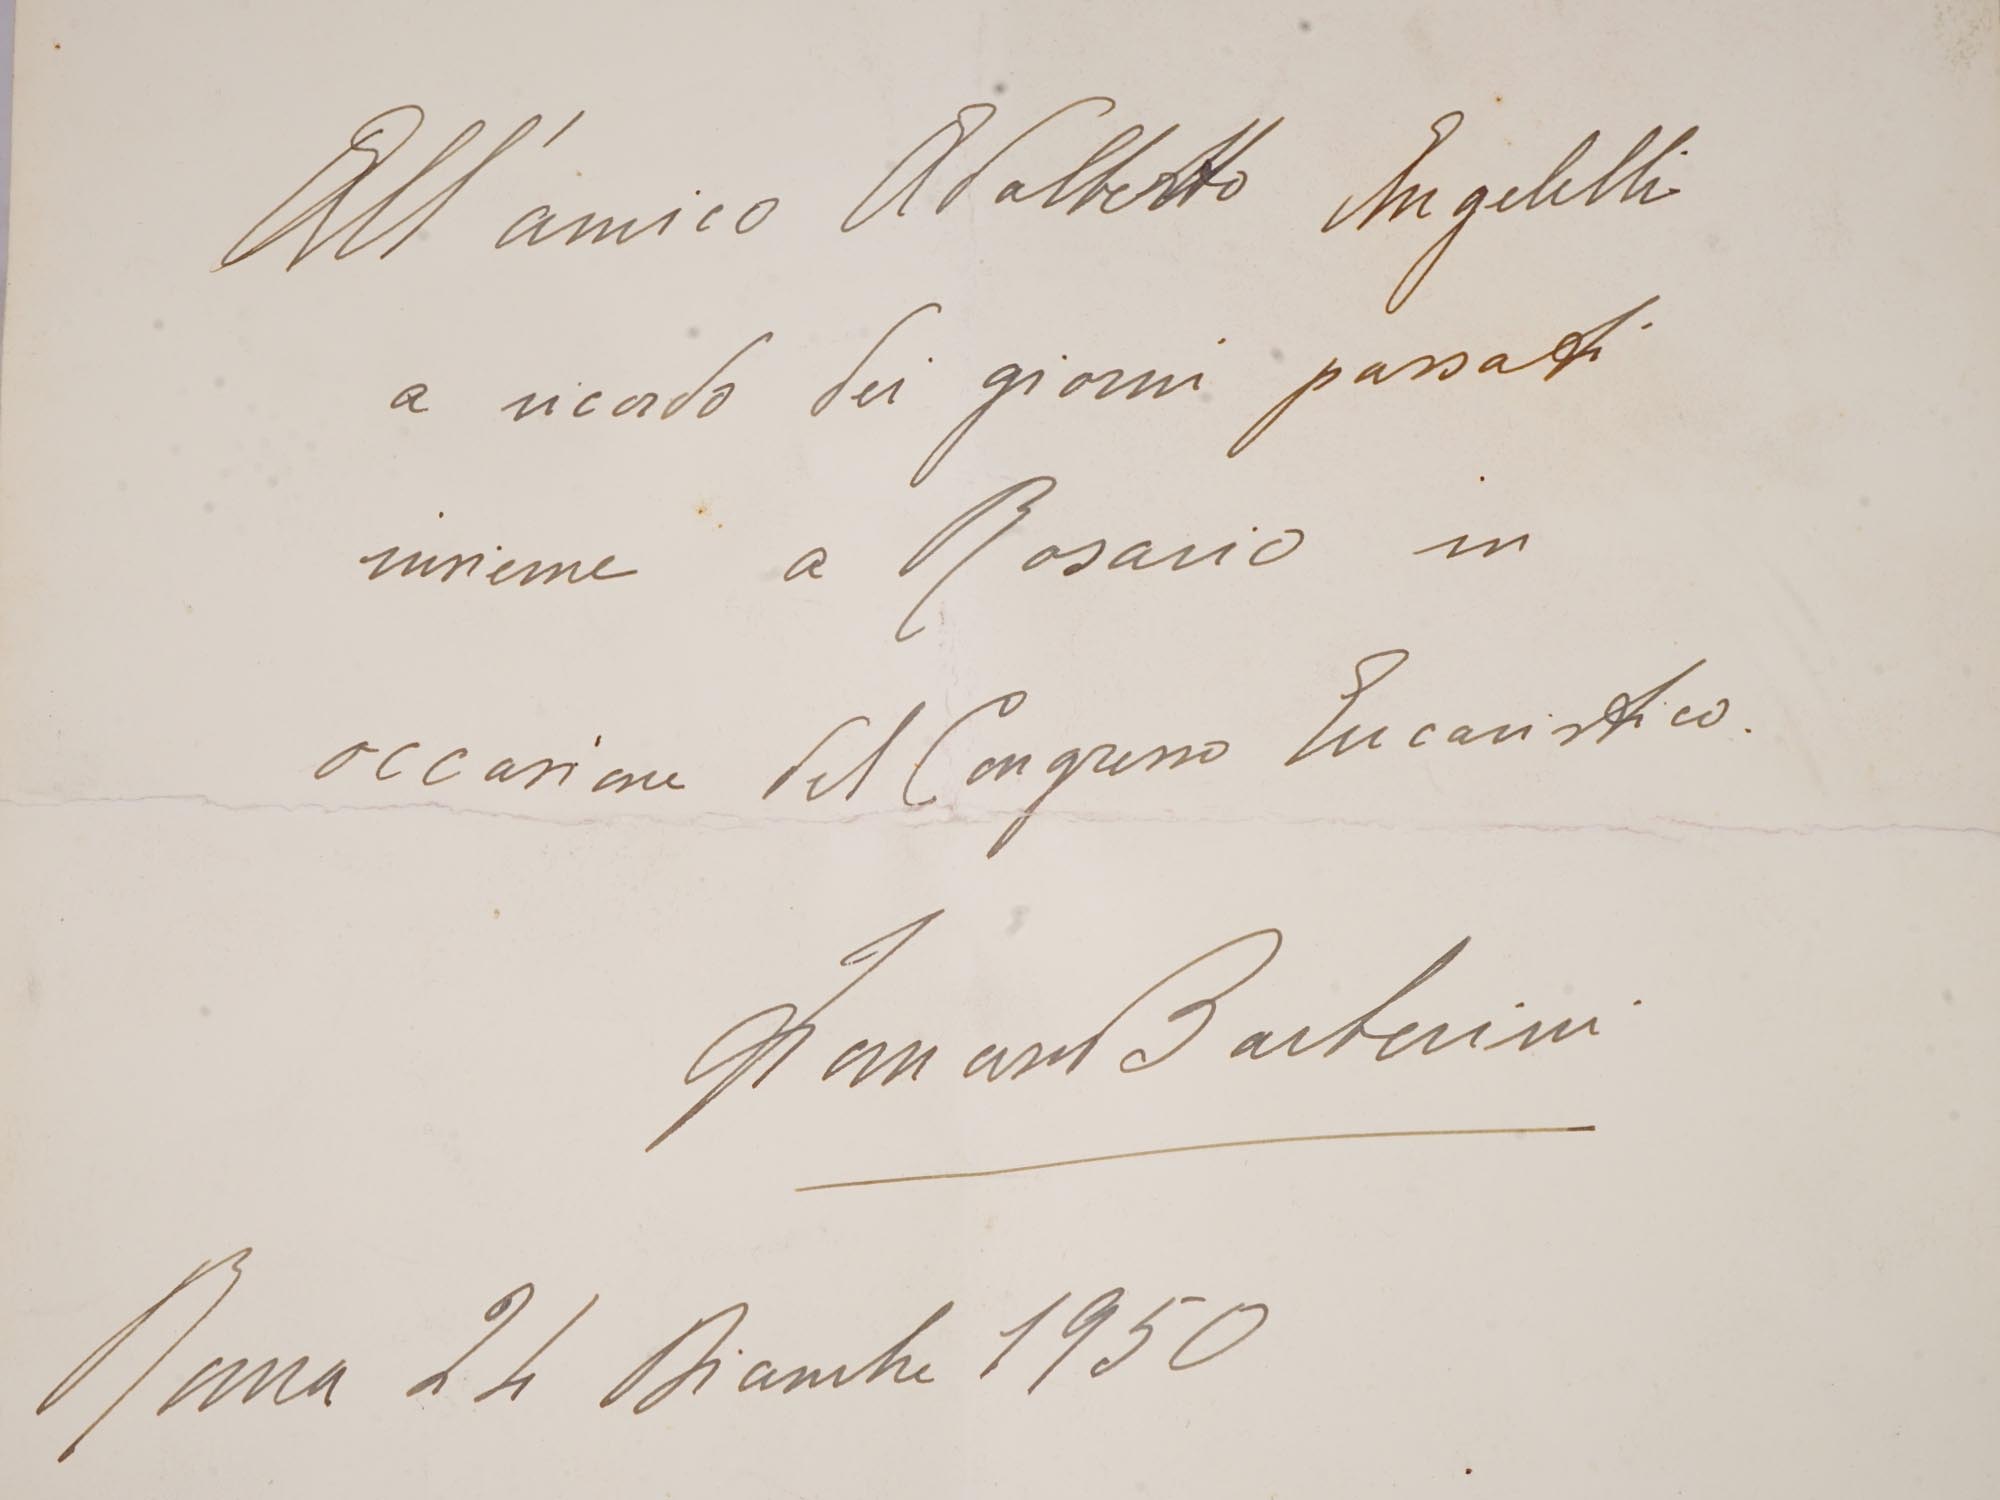 All'amico Adalberto Angelelli
a ricordo dei giorni passati
insieme a Rosario in
occasione del Congresso Eucaristico.
Barberini
Roma 24 Dicembre 1950